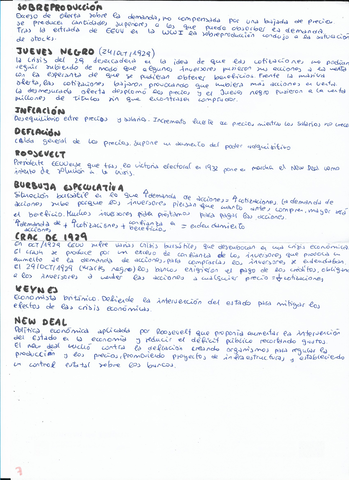 SOBREPRODUCCIÓN
Exceso de oferta sobre la demanda, no compensada por una bajada de precios.
Se producen cantidades superiores a las que puede absorber la demanda
Tras la entrada de EEUU en la WWI la sobreproducción condujo a la saturación
de stocks.
JUEVES NEGRO (24/OCT/1929)
La crisis del 29 desencadena en la idea de que las cotizaciones no podían
seguir subiendo de modo que algunos inversores pusieron sus acciones a la venta
con la esperanza de que se pudieran obtener beneficios. Frente la masiva
oferta, las cotizaciones bajaron provocando que hubiera más acciones en venta.
La desmesurada oferta desplomó los precios y el Jueves negro pusieron a la venta
millones de títulos sin que encontrasen comprador.
INFLACIÓN
Desequilibrio entre precios y salario. Incremento fuerte de precios mientras los salarios no crecen
DEFLACIÓN
Caída general de los precios, supone un aumento del poder adquisitivo
ROOSEVELT
Presidente EEUU que tras la victoria electoral en 1932 pone en marcha el New Deal como
intento de solución a la crisis.
BURBUJA ESPECULATIVA
Situación bursátil en la que ↑demanda de acciones ↑cotizaciones. La demanda de
acciones sube porque los inversores piensan que cuanto antes compren, mayor será
el beneficio. Muchos inversores piden préstamos para pagar las acciones.
↑demanda acciones + ↑cotizaciones + confianza en beneficios = endeudamiento
CRAC DE 1929
En OCT/1929 EEUU sufre varias crisis bursátiles que desembocan en una crisis económica
El crash se produce por un exceso de confianza de los inversores que provoca un
aumento de la demanda de acciones, para comprarlas los inversores se endeudaban
El 24/OCT/1929 (Jueves negro) los bancos exigieron el pago de los créditos, obligando
a los inversores a vender las acciones a cualquier precio ↓cotizaciones
KEYNES
Economista británico. Defiende la intervención del estado para mitigar los
efectos de las crisis económicas.
NEW DEAL
Política económica aplicada por Roosevelt que proponía aumentar la intervención
del estado en la economía y reducir el déficit público recortando gastos.
El new deal luchó contra la deflación creando organismos para regular la
producción y los precios, promoviendo proyectos de infraestructuras y estableciendo
un control estatal sobre los bancos.